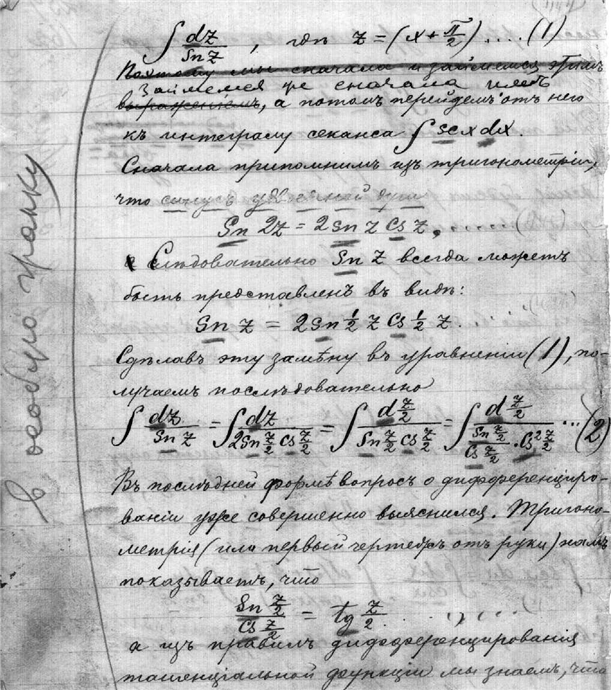 ∫ dz / Sn z , гдѣ z = (x + π/2) .... (1)
Поэтому мы сначала и займемся этимъ
Займемся же сначала
выраженіемъ, а потомъ перейдемъ отъ него
къ интегралу секанса ∫ sc x dx.
Сначала припомнимъ изъ тригонометріи,
что синусъ удвоенной дуги
Sn 2z = 2 sn z cs z, ......
Слѣдовательно Sn z всегда можетъ
быть представленъ въ видѣ:
Sn z = 2 sn ½ z cs ½ z.
Сдѣлавъ эту замѣну въ уравненіи (1), по-
лучаемъ послѣдовательно
∫ dz / Sn z = ∫ dz / 2 Sn z/2 Cs z/2 = ∫ d z/2 / Sn z/2 Cs z/2 = ∫ d z/2 / (Sn z/2 / Cs z/2 · Cs² z/2) ... (2)
Въ послѣдней формѣ вопросъ о дифференциро-
ваніи уже совершенно выяснился. Тригоно-
метрія (или первый чертежъ отъ руки) намъ
показываетъ, что
Sn z/2 / Cs z/2 = tg z/2 ......
а изъ правилъ дифференцированія
тангенціальной функціи мы знаемъ, что
в особую гранку